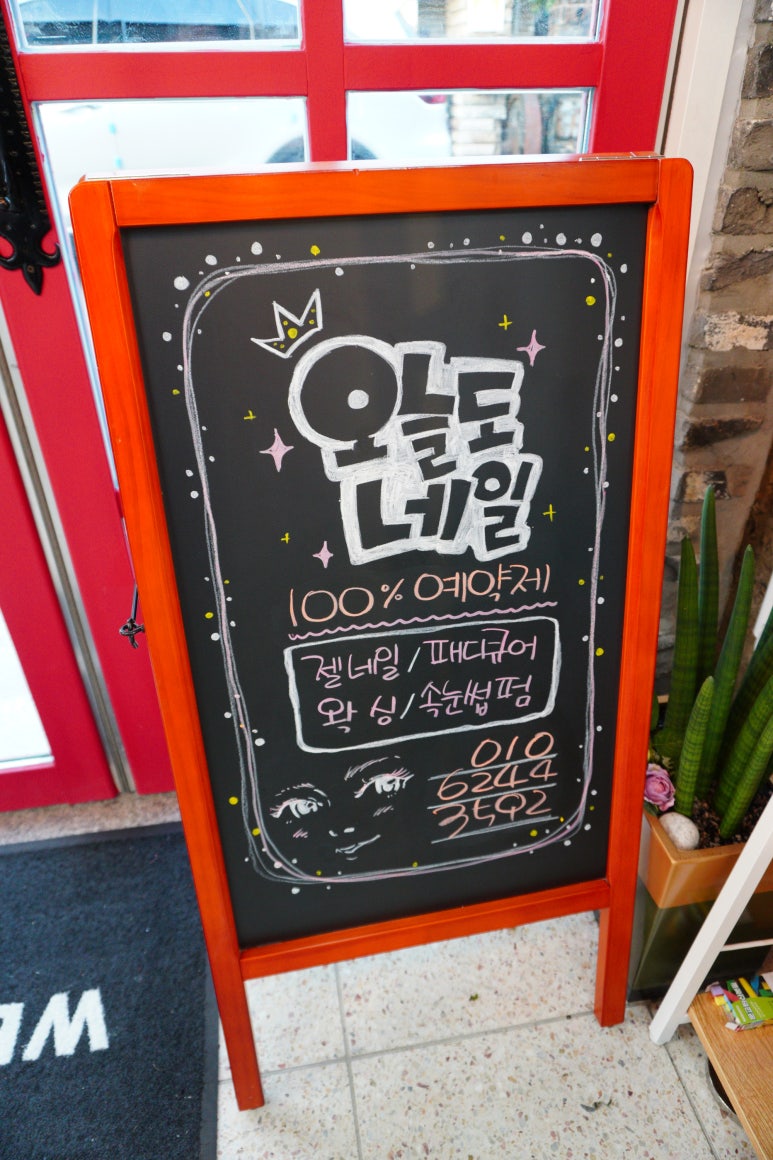 오늘도
네일
100% 예약제
젤네일/패디큐어
왁싱/속눈썹펌
010
6244
3592
WE